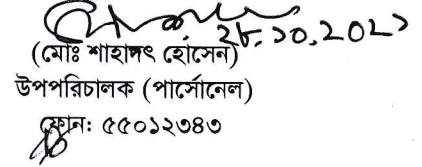 ২৮.১০.২০২১
(মোঃ শাহাদৎ হোসেন)
উপপরিচালক (পার্সোনেল)
ফোনঃ ৫৫০১২৩৪৩